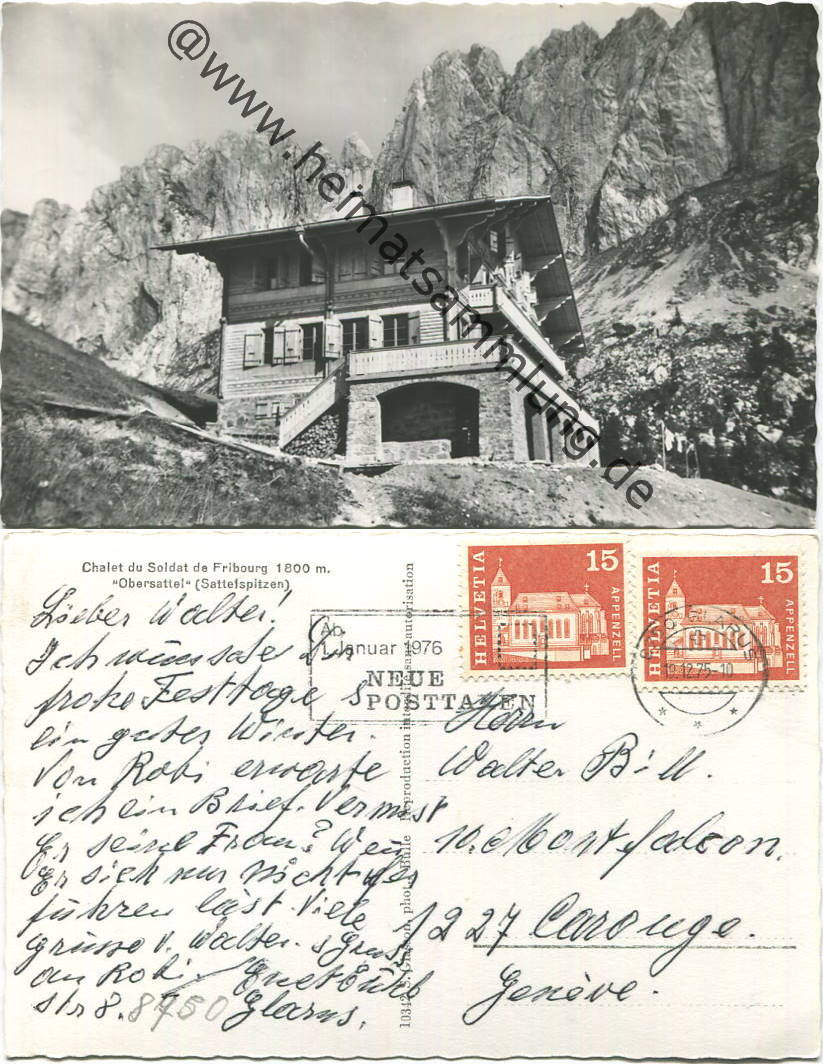 @www.heimatsammlung.de
Chalet du Soldat de Fribourg 1800 m.
"Obersattel" (Sattelspitzen)
Lieber Walter!
Ich wünsche Dir
frohe Festtage &
ein guter Winter.
Von Robi erwarte
ich ein Brief. Vermist
Er seine Frau? Wen
Er sich nur nicht
führen läst. Viele
grüsse v. Walter. & Gruss
an Robi
str 8. 8750 Glarus.
Reproduction interdite sans autorisation
photo, Bulle
10342
Ab
1. Januar 1976
NEUE
POSTTAXEN
HELVETIA
15
APPENZELL
HELVETIA
15
APPENZELL
GLARUS
19.12.75-10
Herrn
Walter Bill.
Montfalcon.
1227 Carouge.
Genève.